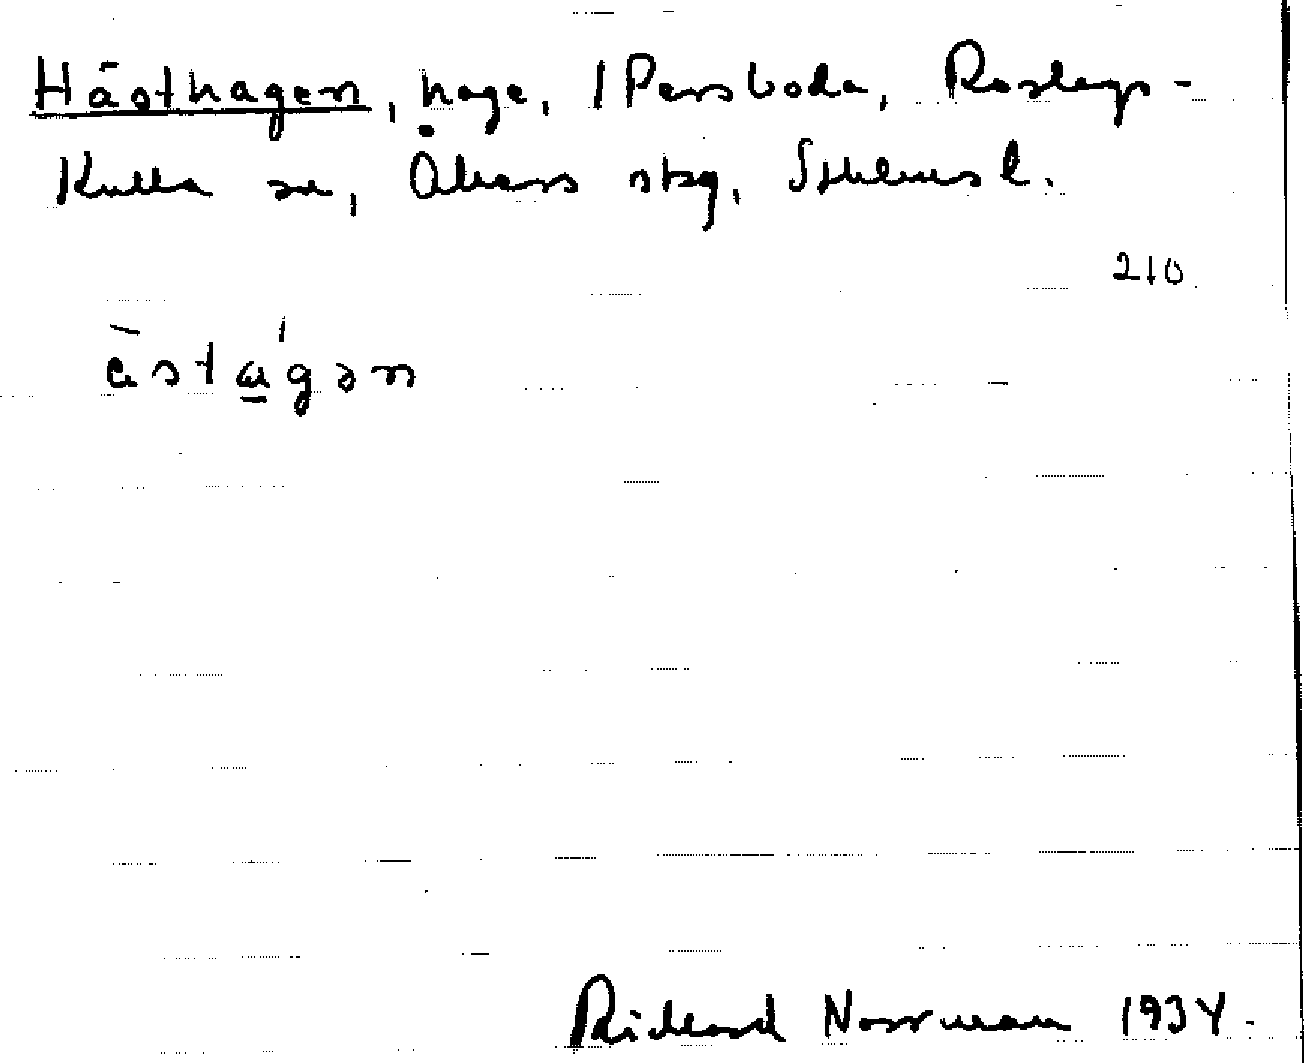 Hästhagen, hage, 1 Persboda, Roslags-
Kulla sn, Åkers skg, Sthlms l.
210
ästɑgən
Rickard Norrman 1934.